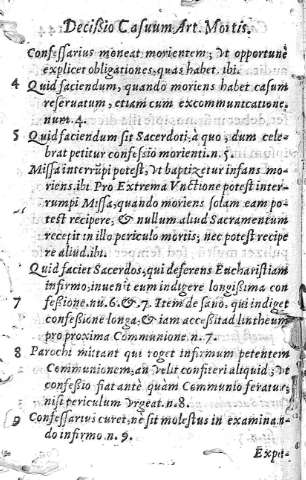 Decißio Casuum Art. Mortis.
Confessarius moneat morientem, vt opportunè
explicet obligationes, quas habet. ibi.
4 Quid faciendum, quando moriens habet casum
reseruatum, etiam cum excommunicatione.
num. 4.
5 Quid faciendum sit Sacerdoti, à quo, dum cele-
brat petitur confessio morienti. n. 5.
Missa interrũpi potest, vt baptizetur infans mo-
riens. ibi. Pro Extrema Vnctione potest inter-
rumpi Missa, quando moriens solam eam po-
test recipere, & nullum aliud Sacramentum
recepit in illo periculo mortis; nec potest recipe
re aliud. ibi.
Quid faciet Sacerdos, qui deferens Eucharistiam
infirmo, inuenit eum indigere longissima con
7 feßione. nu. 6. & 7. Item de sano, qui indiget
confeßione longa, & iam acceßit ad lintheum
pro proxima Communione. n. 7.
8 Parochi mittant qui roget infirmum petentem
Communionem, an velit confiteri aliquid; vt
confeßio fiat antè quàm Communio feratur;
nisi periculum vrgeat. n. 8.
9 Confessarius curet, ne sit molestus in examinan-
do infirmo. n. 9.
Expe-